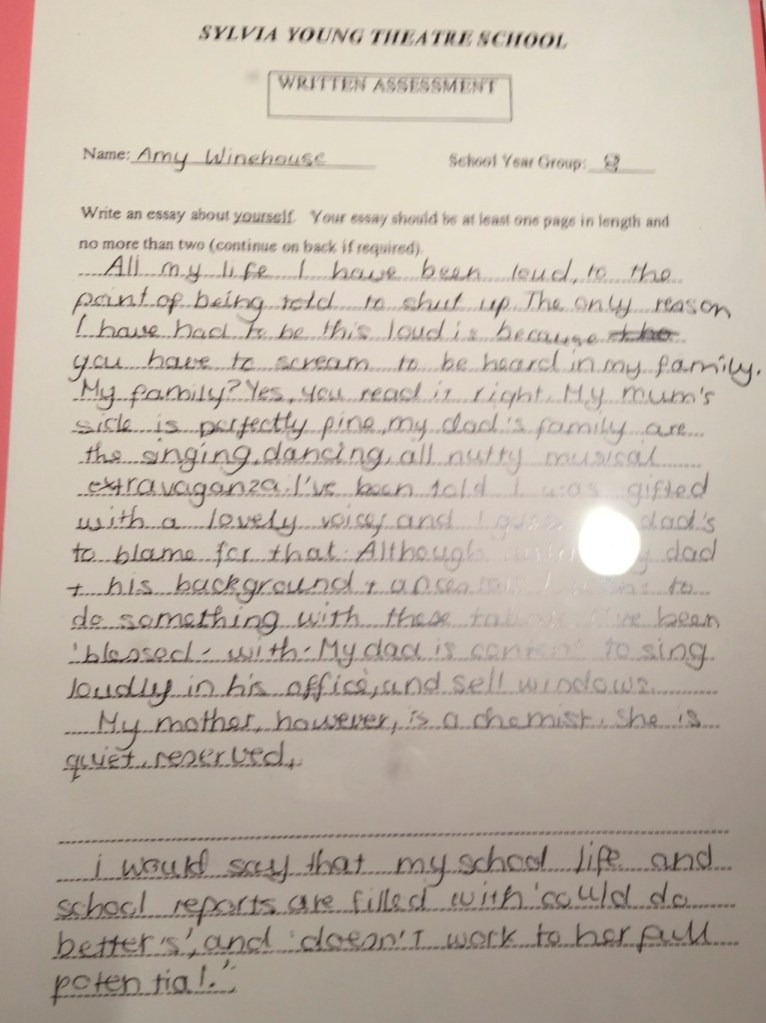 SYLVIA YOUNG THEATRE SCHOOL
WRITTEN ASSESSMENT
Name: Amy Winehouse School Year Group: 8
Write an essay about yourself. Your essay should be at least one page in length and
no more than two (continue on back if required).
All my life I have been loud, to the
point of being told to shut up. The only reason
I have had to be this loud is because
you have to scream to be heard in my family.
My family? Yes, you read it right. My mum's
side is perfectly fine, my dad's family are
the singing, dancing, all nutty musical
extravaganza. I've been told I was gifted
with a lovely voice, and I guess dad's
to blame for that. Although dad
+ his background + to
do something with these I've been
'blessed' with. My dad is content to sing
loudly in his office, and sell windows.
My mother, however, is a chemist. She is
quiet, reserved,.
i would say that my school life and
school reports are filled with 'could do
better's', and 'doesn't work to her full
potential.'